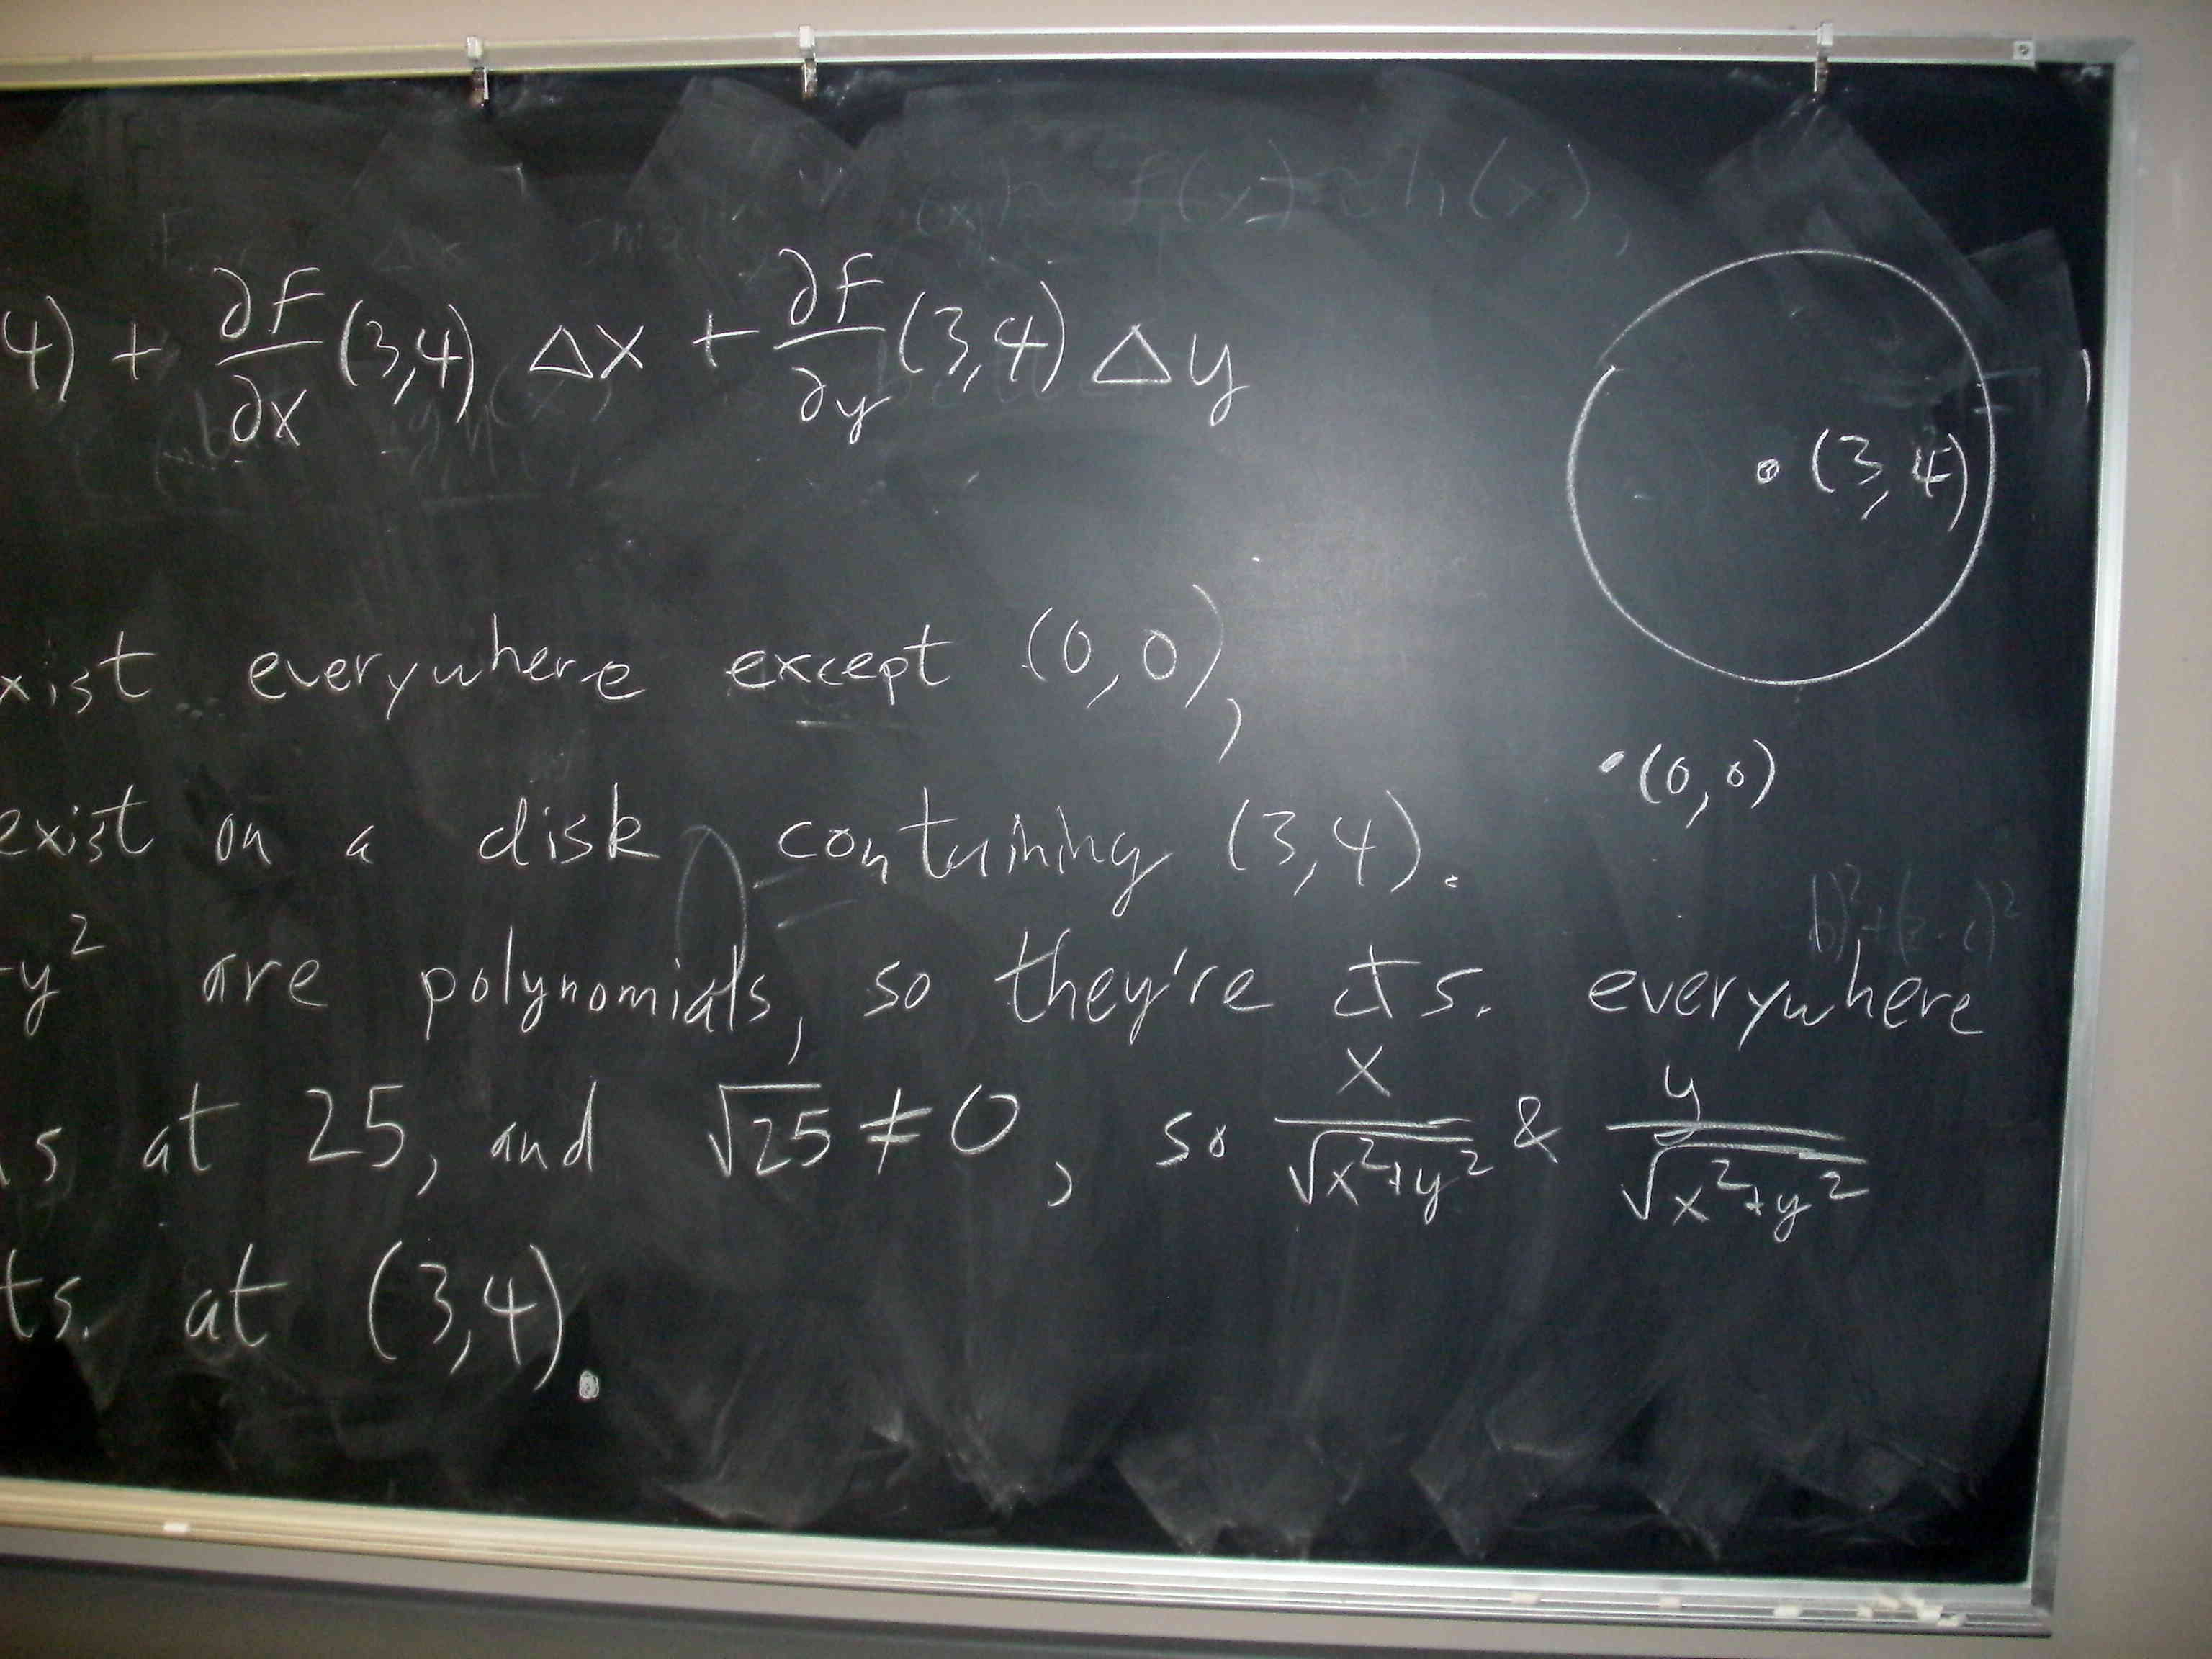 4) + ∂f/∂x (3,4) Δx + ∂f/∂y (3,4) Δy
(3,4)
xist everywhere except (0,0),
(0,0)
exist on a disk containing (3,4).
y² are polynomials, so they're cts. everywhere
s at 25, and √25 ≠ 0, so x/√(x²+y²) & y/√(x²+y²)
ts. at (3,4).